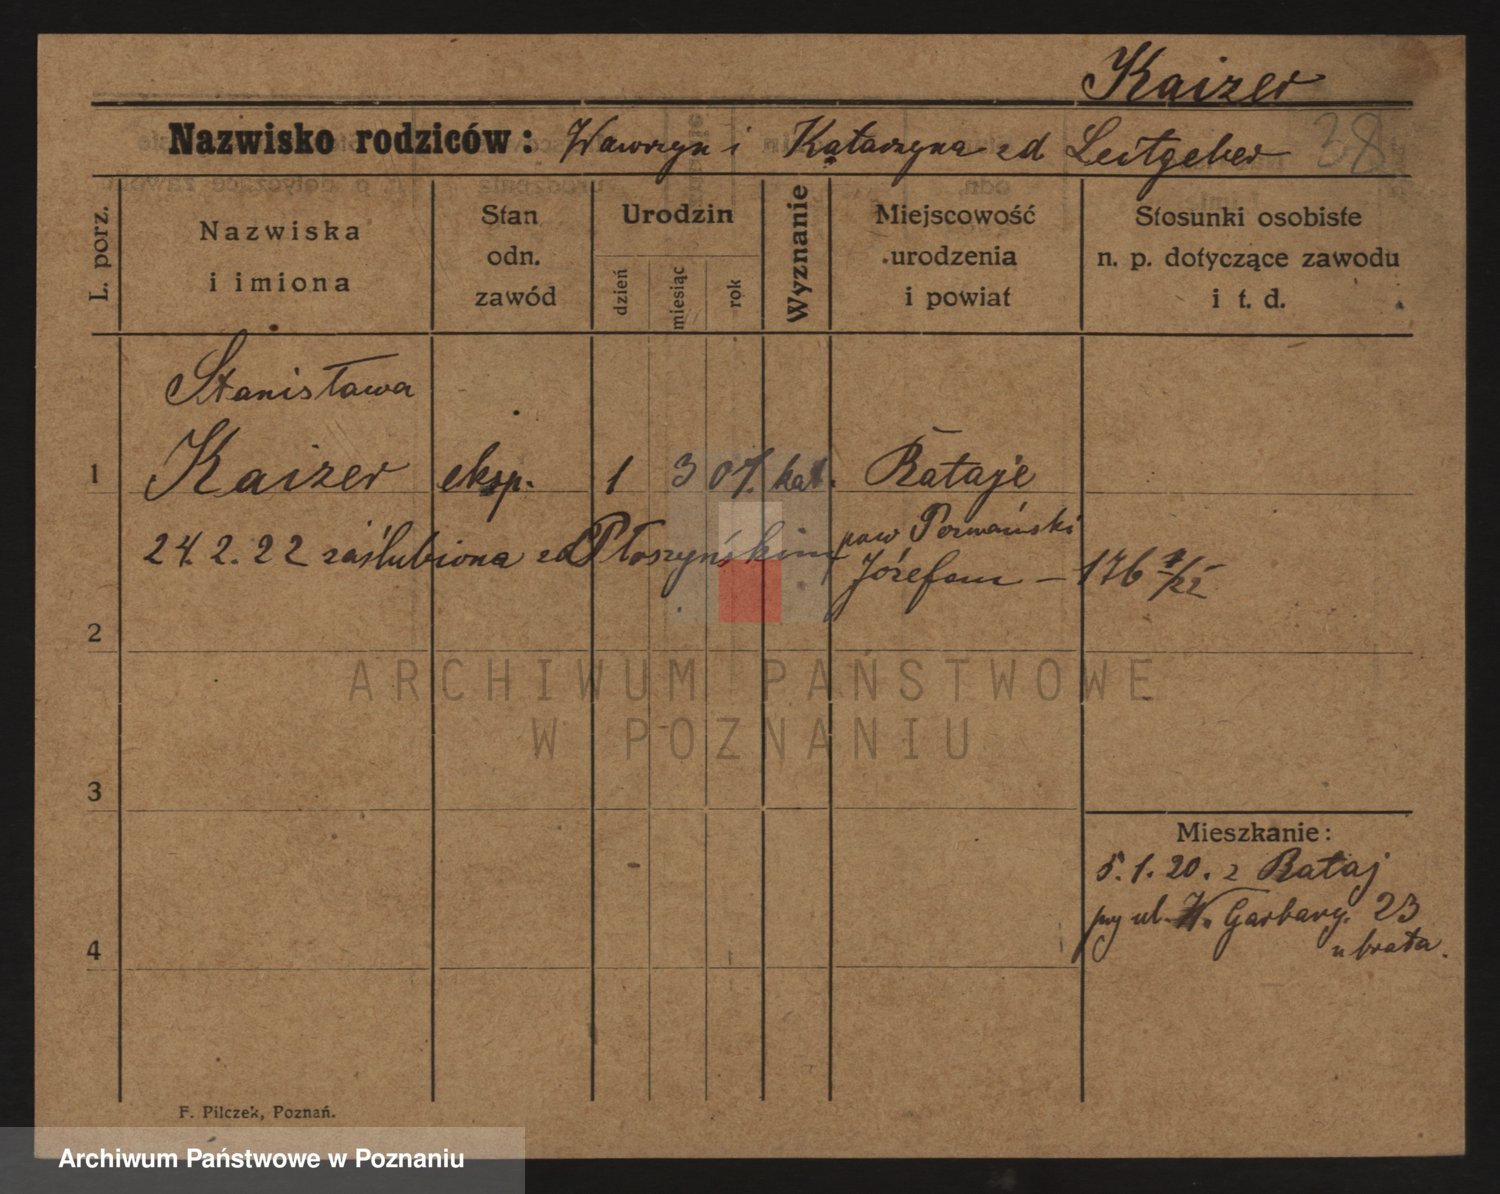 Kaizer
Nazwisko rodziców: Wawrzyn i Katarzyna zd Leitgeber 38
L. porz.
Nazwiska
i imiona
Stan
odn.
zawód
Urodzin
dzień
miesiąc
rok
Wyznanie
Miejscowość
urodzenia
i powiat
Stosunki osobiste
n. p. dotyczące zawodu
i t. d.
Stanisława
1 Kaizer eksp. 1 3 07. kat. Rataje
pow Poznański
24.2.22 zaślubiona Płoszyńskim
Józefem – 176
2
ARCHIWUM PAŃSTWOWE
W POZNANIU
3
Mieszkanie:
5.1.20. z Rataj
przy ul. W. Garbary. 23
u brata.
4
F. Pilczek, Poznań.
Archiwum Państwowe w Poznaniu